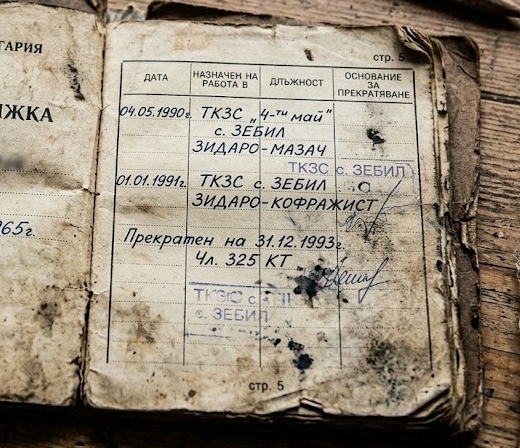 ГАРИЯ
ЖКА
65г.
стр. 5
ДАТА
НАЗНАЧЕН НА РАБОТА В
ДЛЪЖНОСТ
ОСНОВАНИЕ ЗА ПРЕКРАТЯВАНЕ
04.05.1990г. ТКЗС „4-ти май"
с. ЗЕБИЛ
ЗИДАРО-МАЗАЧ
ТКЗС с. ЗЕБИЛ
01.01.1991г. ТКЗС с. ЗЕБИЛ
ЗИДАРО-КОФРАЖИСТ
Прекратен на 31.12.1993г.
Чл. 325 КТ
ТКЗС с.
с. ЗЕБИЛ
стр. 5